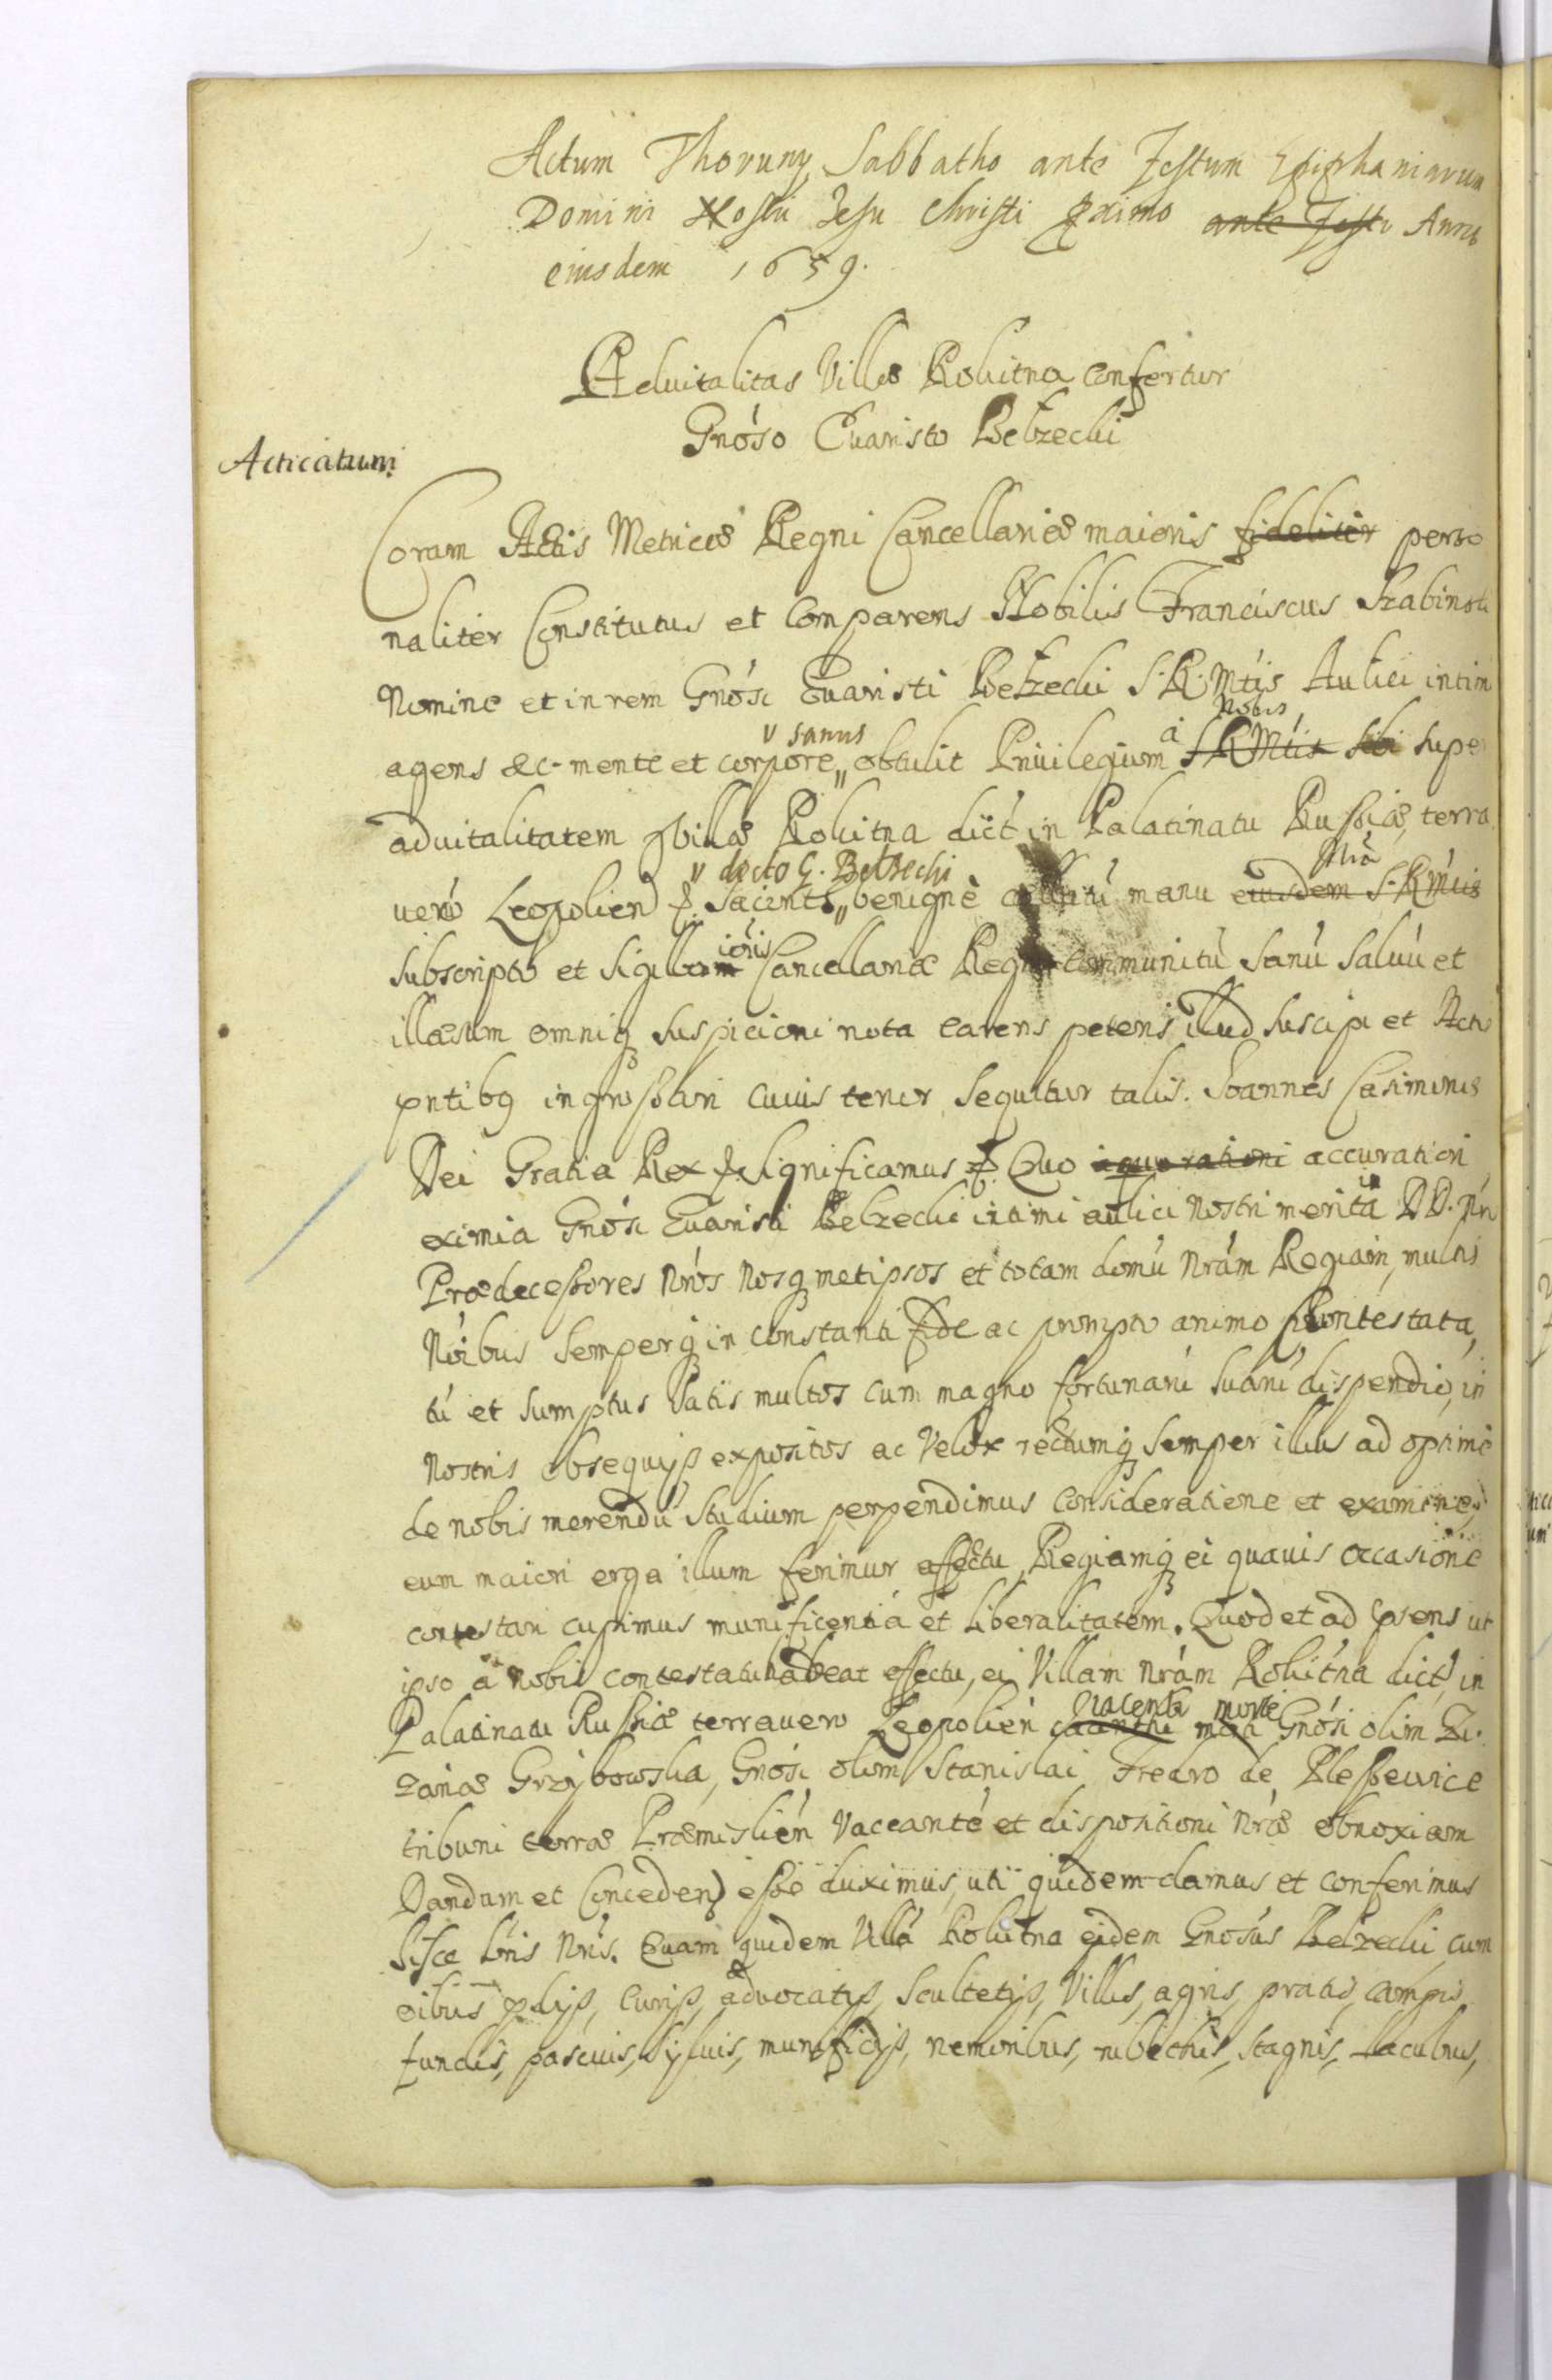 Actum Thoruny Sabbatho ante Festum Epiphaniarum
Domini Nostri Jesu Christi proximo ante Festu Anno
eiusdem 1659.
Advitalitas Villæ Rokitna confertur
Gnóso Evaristo Bełzecki
Acticatum
Coram Actis Metrices Regni Cancellariæ maioris fideliter perso
naliter Constitutus et Comparens Nobilis Franciscus
Nomine et in rem Gnósi Evaristi Bełzecki S. R. Mtis Aulici intimi
sanus à Nobis
agens &c. mente et corpore obtulit Privilegium S R Mtis sibi super
advitalitatem villæ Rokitna dict in Palatinatu Russiæ, terra
dicto G. Bełzechi Nrâ
vero Leopolien Jacents benigne manu eiusdem S. R. Mtis
ioris
subscripto et sigillo Cancellariæ Regni communitú sanú salvú et
illæsum omniq suspicioni nota carens petens illud suscipi et Actis
pntibq ingrossari cuius tenor sequitur talis. Joannes Casimirus
Dei Gratia Rex & significamus & Quo accuratiori
in
eximia Gnósi Evaristi Bełzecki intimi aulici nostri merita DD. Nri
Prædecessores Nrós Nosq metipsos et totam domú Nrám Regiam, multis
Nóibus semperq in constanti fide ac prompto animo contestata,
tú et sumptus satis multos cum magno fortunarú suarú dispendio, in
nostris obsequijs expositos ac velox rectumq semper illius ad optime
de nobis merendú studium perpendimus consideratione et examine,
eum maiori erga illum ferimur affectu, Regiamq ei quavis occasione
contestari cupimus munificentiá et liberalitatem. Quod et ad præsens ut
ipso à nobis contestatú habeat effectu, ei Villam nrám Rokitna dict in
vacentem morte
Palatinatu Russiæ terra vero Leopolien Gnósi olim Zu-
zannæ Grzybowska, Gnósi olim Stanislai Fredro de Plessewice
tribuni terræ Præmislien Vaccanté et dispositioni Nræ obnoxiam
Dandam et Conceden esse duximus, uti quidem damus et conferimus
hisce Lris Nris. Quam quidem Villá Rokitna eidem Gnósus Bełzecki cum
oibus pdijs, curijs, advocatijs, scultetijs, villis, agris, pratis, campis,
fundis, pascuis, sylvis, nemoribus, rubethis, stagnis, lacubus,